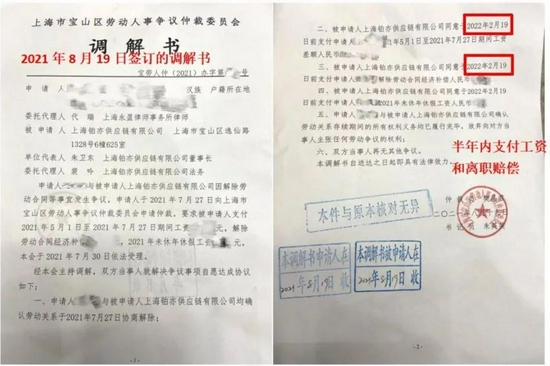 上海市宝山区劳动人事争议仲裁委员会
调解书
2021年8月19日签订的调解书
宝劳人仲(2021)办字第 号
申请人 汉族 户籍所在地
委托代理人 代瑞 上海永盈律师事务所律师
被申请人 上海铂亦供应链有限公司 上海市宝山区逸仙路
1328号6幢625室
单位代表 朱卫东 上海铂亦供应链有限公司董事长
委托代理人 裴吟 上海铂亦供应链有限公司法务
申请人 与被申请人上海铂亦供应链有限公司因解除劳
动合同等事宜发生争议。申请人于2021年7月27日向上海
市宝山区劳动人事争议仲裁委员会申请仲裁。要求被申请人支付
2021年5月1日至2021年7月27日期间工资 元,解除
劳动合同经济补偿 ,2021年未休年休假工资 元。
本会于2021年7月30日依法受理。
经本会主持调解,双方当事人就解决争议事项自愿达成协议
如下:
一、申请人 与被申请人上海铂亦供应链有限公司均确
认劳动关系于2021年7月27日协商解除;
-1-
二、被申请人上海铂亦供应链有限公司同意于2022年2月19
日前支付申请人 年5月1日至2021年7月27日期间工资
差额人民币
三、被申请人上海铂亦供应链有限公司同意于2022年2月19
日前支付申请人 解除劳动合同经济补偿人民币
2021年未休年休假工资人民币
上海铂亦供应链有限公司确认
劳动关系存续期间的所有权利义务均已履行完毕,放弃向对方当
事人主张任何劳动权利;
六、双方当事人再无其他争议。
本调解书自送达之日起即具有法律效力。
半年内支付工资
和离职赔偿
本件与原本核对无异
仲裁
二〇二
书记员 朱
本调解书申请人在
2021年8月19日收
本调解书被申请人在
2021年8月19日收
-2-